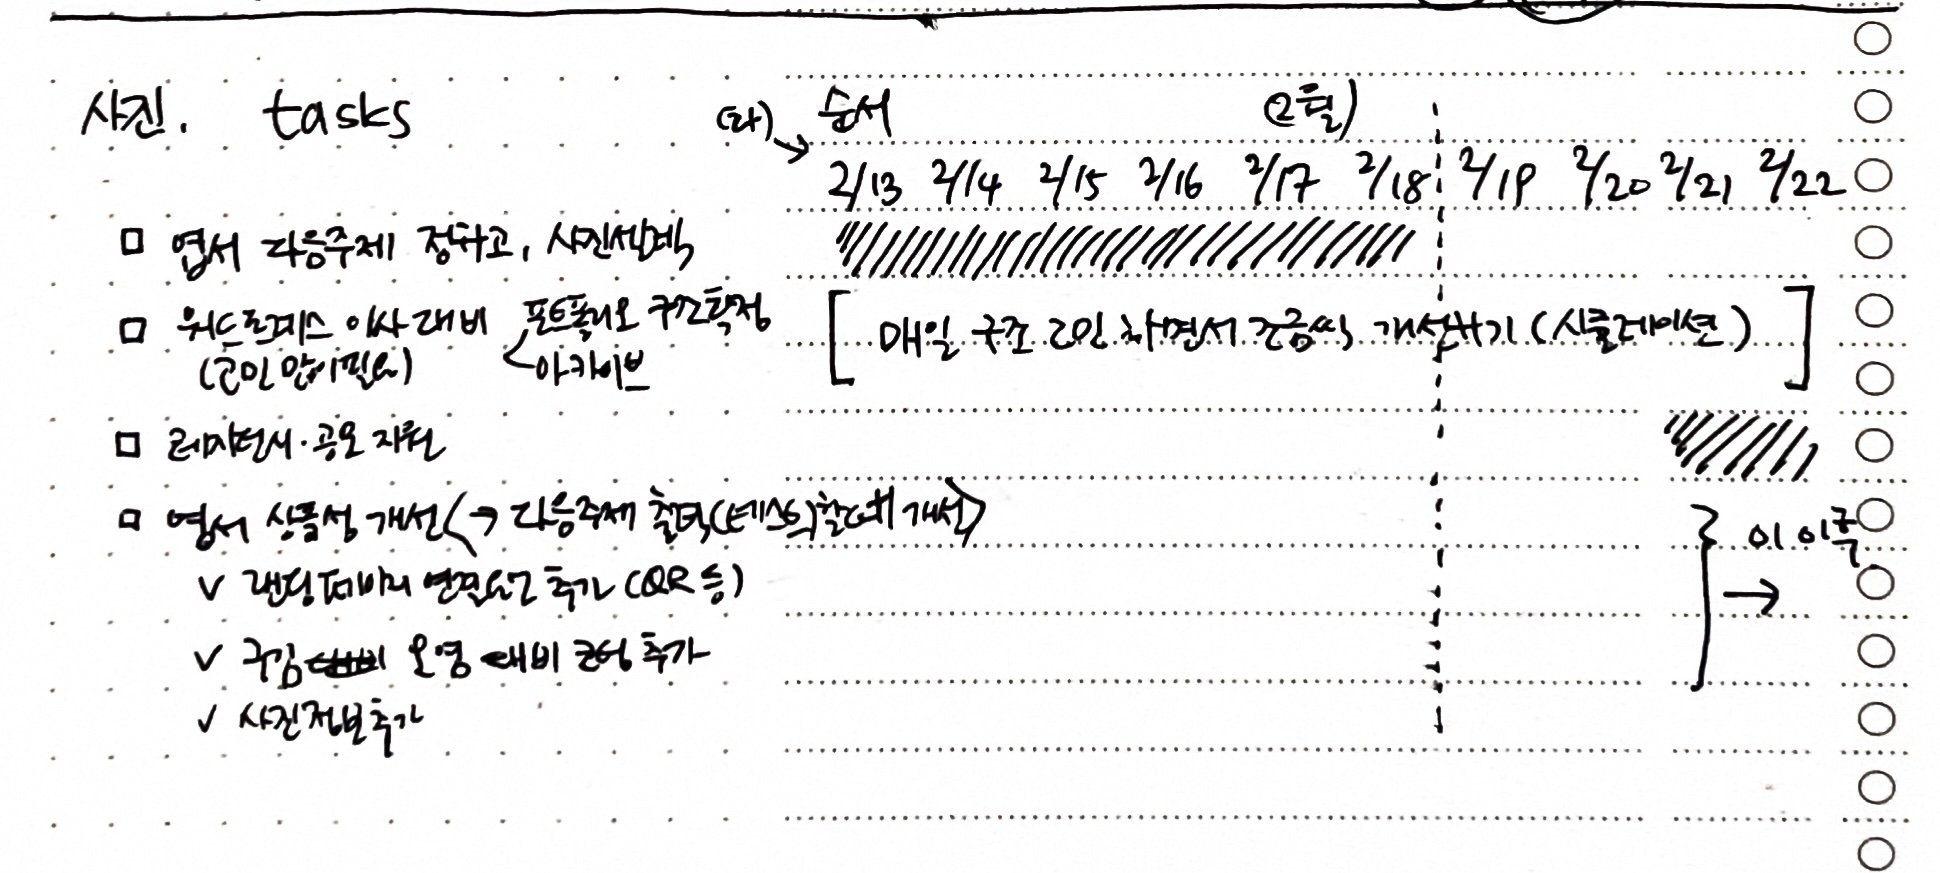 사진. tasks
(화) → 순서 (2월)
2/13 2/14 2/15 2/16 2/17 2/18 2/19 2/20 2/21 2/22
□ 엽서 다음주제 정하고, 사진선택
□ 워드프레스 이사 대비 < 포트폴리오 구조확정
아카이브
(고민 많이필요)
[ 매일 구조 고민 하면서 조금씩 개선하기 (시뮬레이션) ]
□ 레지던시·공모 지원
□ 엽서 상품성 개선 (→ 다음주제 출력(테스트)할때 개선)
} 이 이후 →
v 랜딩페이지 연결요소 추가 (QR 등)
v 구김 오염 대비 코팅 추가
v 사진정보추가